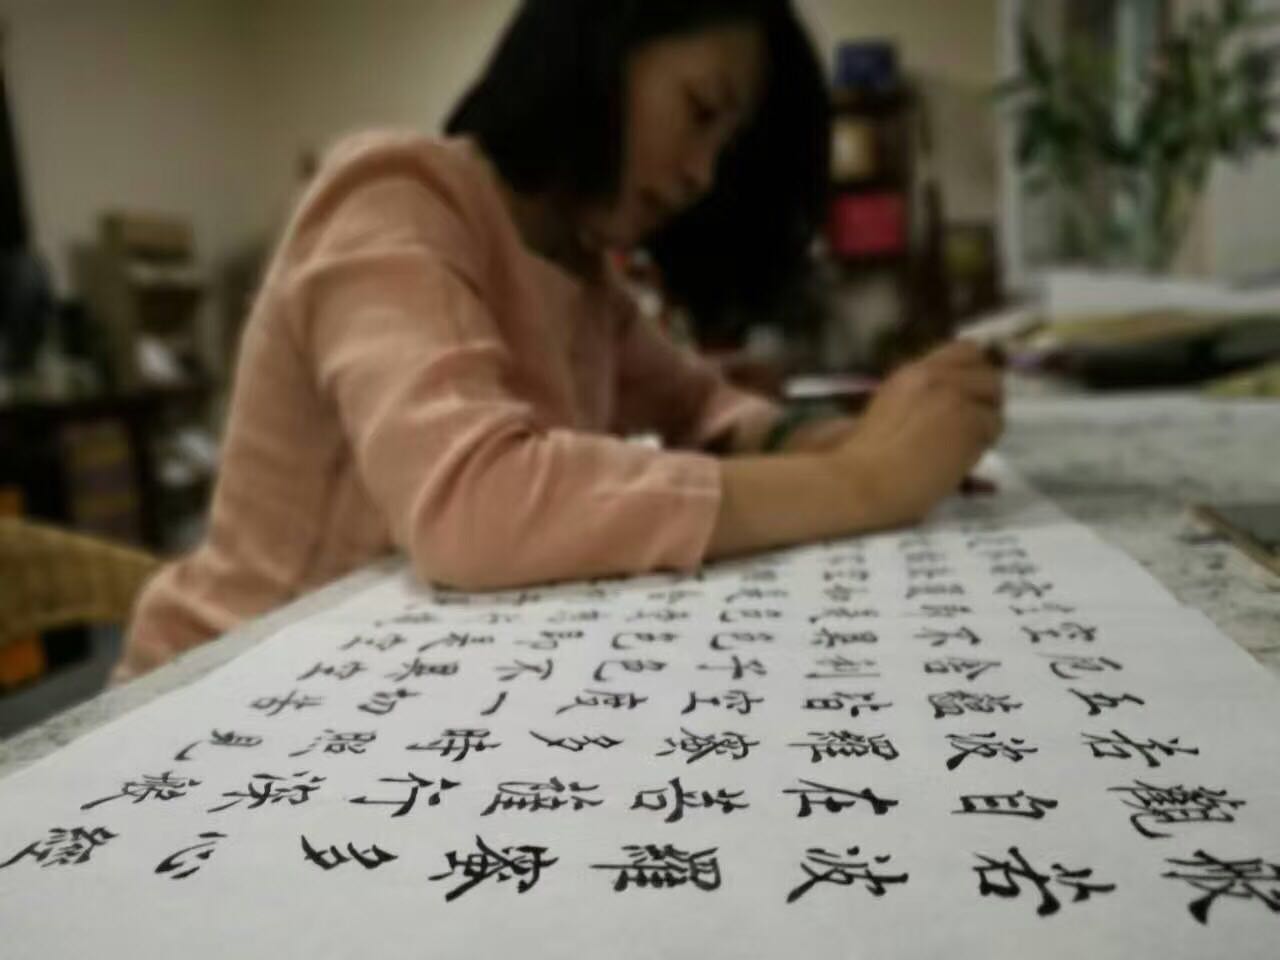 般若波羅蜜多心經
觀自在菩薩行深般
若波羅蜜多時照見
五蘊皆空度一切苦
厄舍利子色不異空
空不異色色即是空
空即是色受想行識